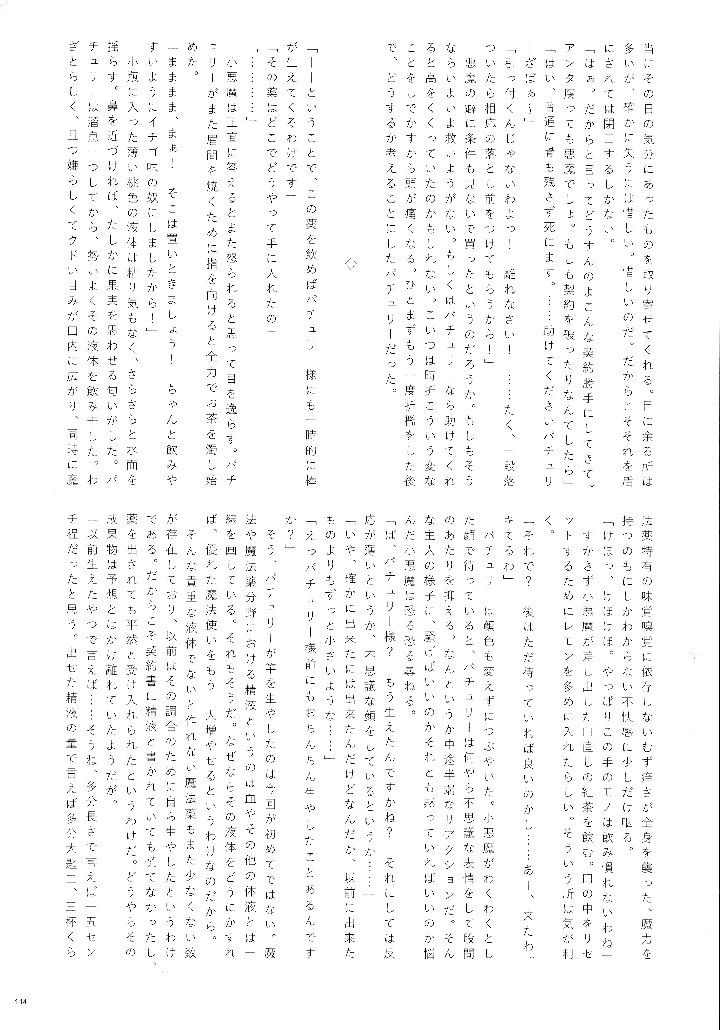 当にその日の気分にあったものを取り寄せてくれる。目に余る所は
多いが、確かに失うには惜しい。惜しいのだ。だからこそそれを盾
にされては閉口するしかない。
「はぁ。だからと言ってどうすんのよこんな契約勝手にしてきて。
アンタ腐っても悪魔でしょ。もしも契約を破ったりなんてしたら」
「はい、普通に骨も残さず死にます。……助けてくださいパチュリ
ーさばぁ〜」
「引っ付くんじゃないわよっ！　離れなさい！　……たく、一段落
ついたら相応の落とし前をつけてもらうから！」
　悪魔の癖に条件も見ないで買ったというのだろうか。もしもそう
ならいよいよ救いようがない。もしくはパチュリーなら助けてくれ
ると高をくくっていたのかもしれない。こいつは時折こういう変な
ことをしでかすから頭が痛くなる。ひとまずもう一度折檻をした後
で、どうするか考えることにしたパチュリーだった。
◇
「――ということで、この薬を飲めばパチュリー様にも一時的に棒
が生えてくるわけです」
「その薬はどこでどうやって手に入れたの」
「…………」
　小悪魔は正直に答えるとまた怒られると思って目を逸らす。パチ
ュリーがまた眉間を焼くために指を向けると全力でお茶を濁し始
めた。
「まままま、まぁ！　そこは置いときましょう！　ちゃんと飲みや
すいようにイチゴ味の奴にしましたから！」
　小瓶に入った薄い桃色の液体は粘り気もなく、さらさらと水面を
揺らす。鼻を近づければ、たしかに果実を思わせる匂いがした。パ
チュリーは溜息一つしてから、勢いよくその液体を飲み干した。わ
ざとらしく、且つ嫌らしくてクドい甘みが口内に広がり、同時に魔
法薬特有の味覚嗅覚に依存しないむず痒さが全身を襲った。魔力を
持つものにしかわからない不快感に少しだけ呻る。
「けほっ、けほけほっ。やっぱりこの手のモノは飲み慣れないわね」
　すかさず小悪魔が差し出した口直しの紅茶を飲む。口の中をリセ
ットするためにレモンを多めに入れたらしい。そういう所は気が利
く。
「それで？　後はただ待っていれば良いのかし……あー、来たわ。
キてるわ」
　パチュリーは顔色も変えずにつぶやいた。小悪魔がわくわくとし
た顔で待っていると、パチュリーは何やら不思議な表情をして股間
のあたりを抑える。なんというか中途半端なリアクションだ。そん
な主人の様子に、騒げばいいのかそれとも黙っていればいいのか悩
んだ小悪魔は恐る恐る尋ねる。
「ぱ、パチュリー様？　もう生えたんですかね？　それにしては反
応が薄いというか、不思議な顔をしているというか……」
「いや、確かに出来たには出来たんだけどなんだか、以前に出来た
ものよりもずっと小さいような……」
「えっパチュリー様前にもおちんちん生やしたことあるんです
か？」
　そう、パチュリーが竿を生やしたのは今回が初めてではない。魔
法や魔法薬分野における精液というのは血やその他の体液とは一
線を画している。それもそうだ。なぜならその液体をどうにかすれ
ば、優れた魔法使いをもう一人増やせるというわけなのだから。
　そんな貴重な液体でないと作れない魔法薬もまた少なくない数
が存在しており、以前はその調合のために自ら生やしたというわけ
である。だからこそ契約書に精液と書かれていても慌てなかったし、
薬を出されても平然と受け入れられたというわけだ。どうやらその
成果物は予想とはかけ離れていたようだが。
「以前生えたやつで言えば……そうね、多分長さで言えば一五セン
チ程だったと思う。出せた精液の量で言えば多分大匙二、三杯くら
114